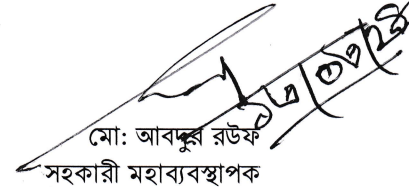 মো: আবদুর রউফ
সহকারী মহাব্যবস্থাপক